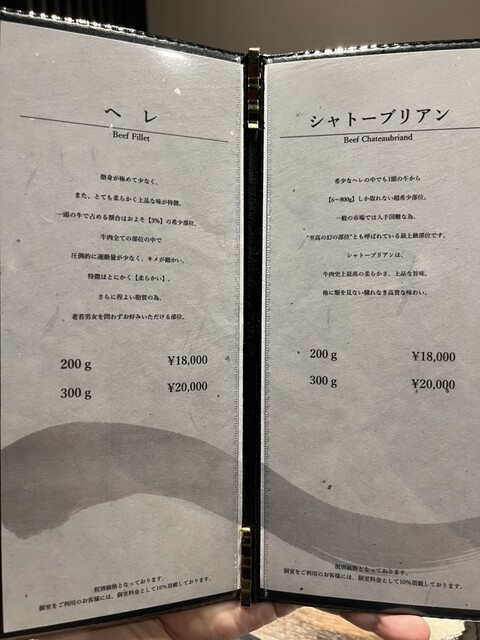 ヘレ
Beef Fillet
脂身が極めて少なく、
また、とても柔らかく上品な味が特徴。
一頭の牛で占める割合はおよそ【3%】の希少部位。
牛肉全ての部位の中で
圧倒的に運動量が少なく、キメが細かい。
特徴はとにかく【柔らかい】。
さらに程よい脂質の為、
老若男女を問わずお好みいただける部位。
200 g ¥18,000
300 g ¥20,000
税別価格となっております。
個室をご利用のお客様には、個室料金として10%頂戴しております。
シャトーブリアン
Beef Chateaubriand
希少なヘレの中でも1頭の牛から
【6~800g】しか取れない超希少部位。
一般の市場では入手困難な為、
"至高の幻の部位"とも呼ばれている最上級部位です。
シャトーブリアンは、
牛肉史上最高の柔らかさ、上品な旨味。
他に類を見ない穢れなき高貴な味わい。
200 g ¥18,000
300 g ¥20,000
税別価格となっております。
個室をご利用のお客様には、個室料金として10%頂戴しております。